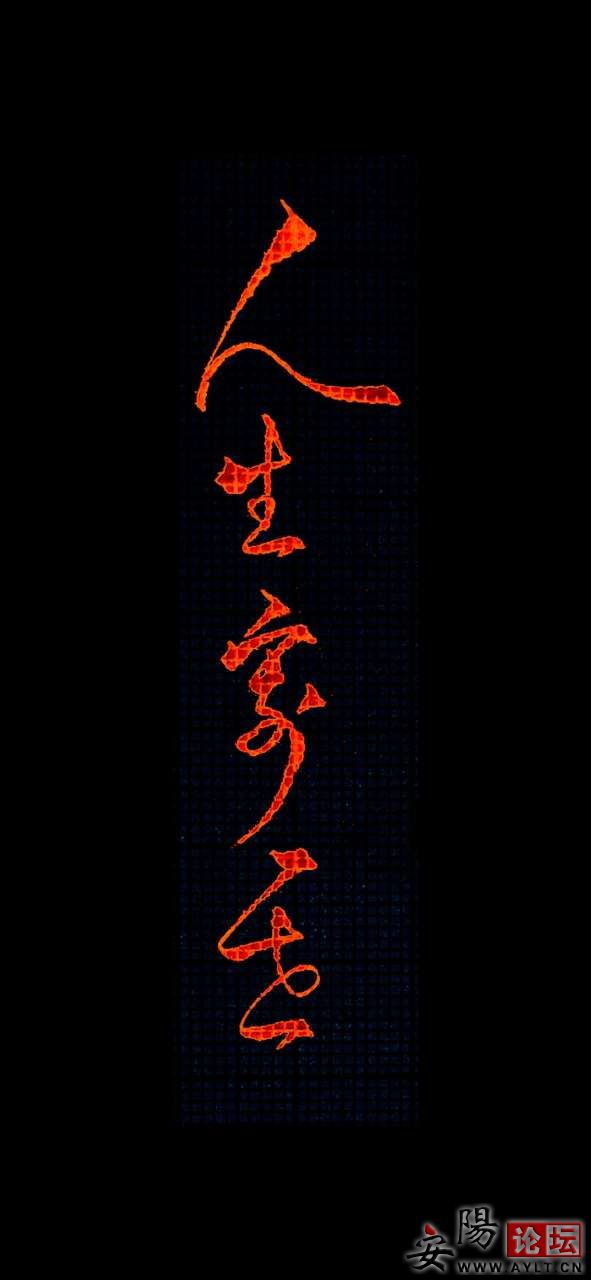 人生家
安陽论坛
WWW.AYLT.CN